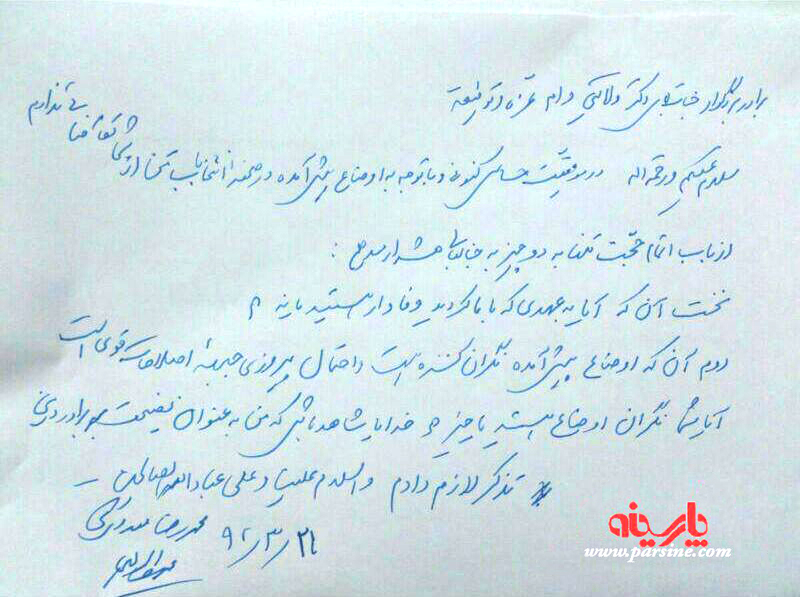 برادر بزرگوار جناب آقای دکتر ولایتی دام عزه و توفیقه
سلام علیکم و رحمة اله در موقعیت حساس کنونی و با توجه به اوضاع پیش آمده در صحنه انتخابات تمنا از شما تقاضایی ندارم
از باب اتمام حجت تنها به دو چیز به جنابعالی هشدار میدهم :
نخست آن که آیا به عهدی که با ما کردید وفادار هستید یا نه ؟
دوم آن که اوضاع پیش آمده نگران کننده است و احتمال پیروزی جبهه اصلاحات قوی است
آیا شما نگران اوضاع هستید یا خیر ؟ خدایا شاهد باش که من به عنوان نصیحت به برادر دینی
تذکر لازم دادم والسلام علینا و علی عباد الله الصالحین
محمدرضا مهدوی کنی
۹۲/۳/۲۱
پارسینه
www.parsine.com